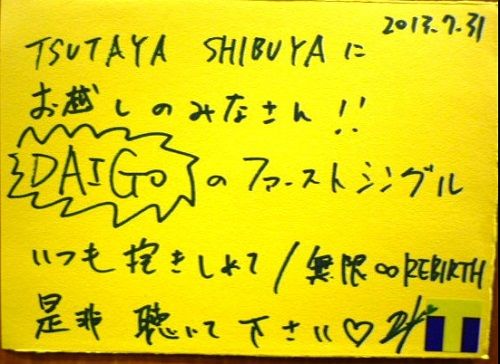 2013.7.31
TSUTAYA SHIBUYAに
お越しのみなさん!!
DAIGoのファーストシングル
いつも抱きしめて/無限∞REBIRTH
是非 聴いて下さい♡